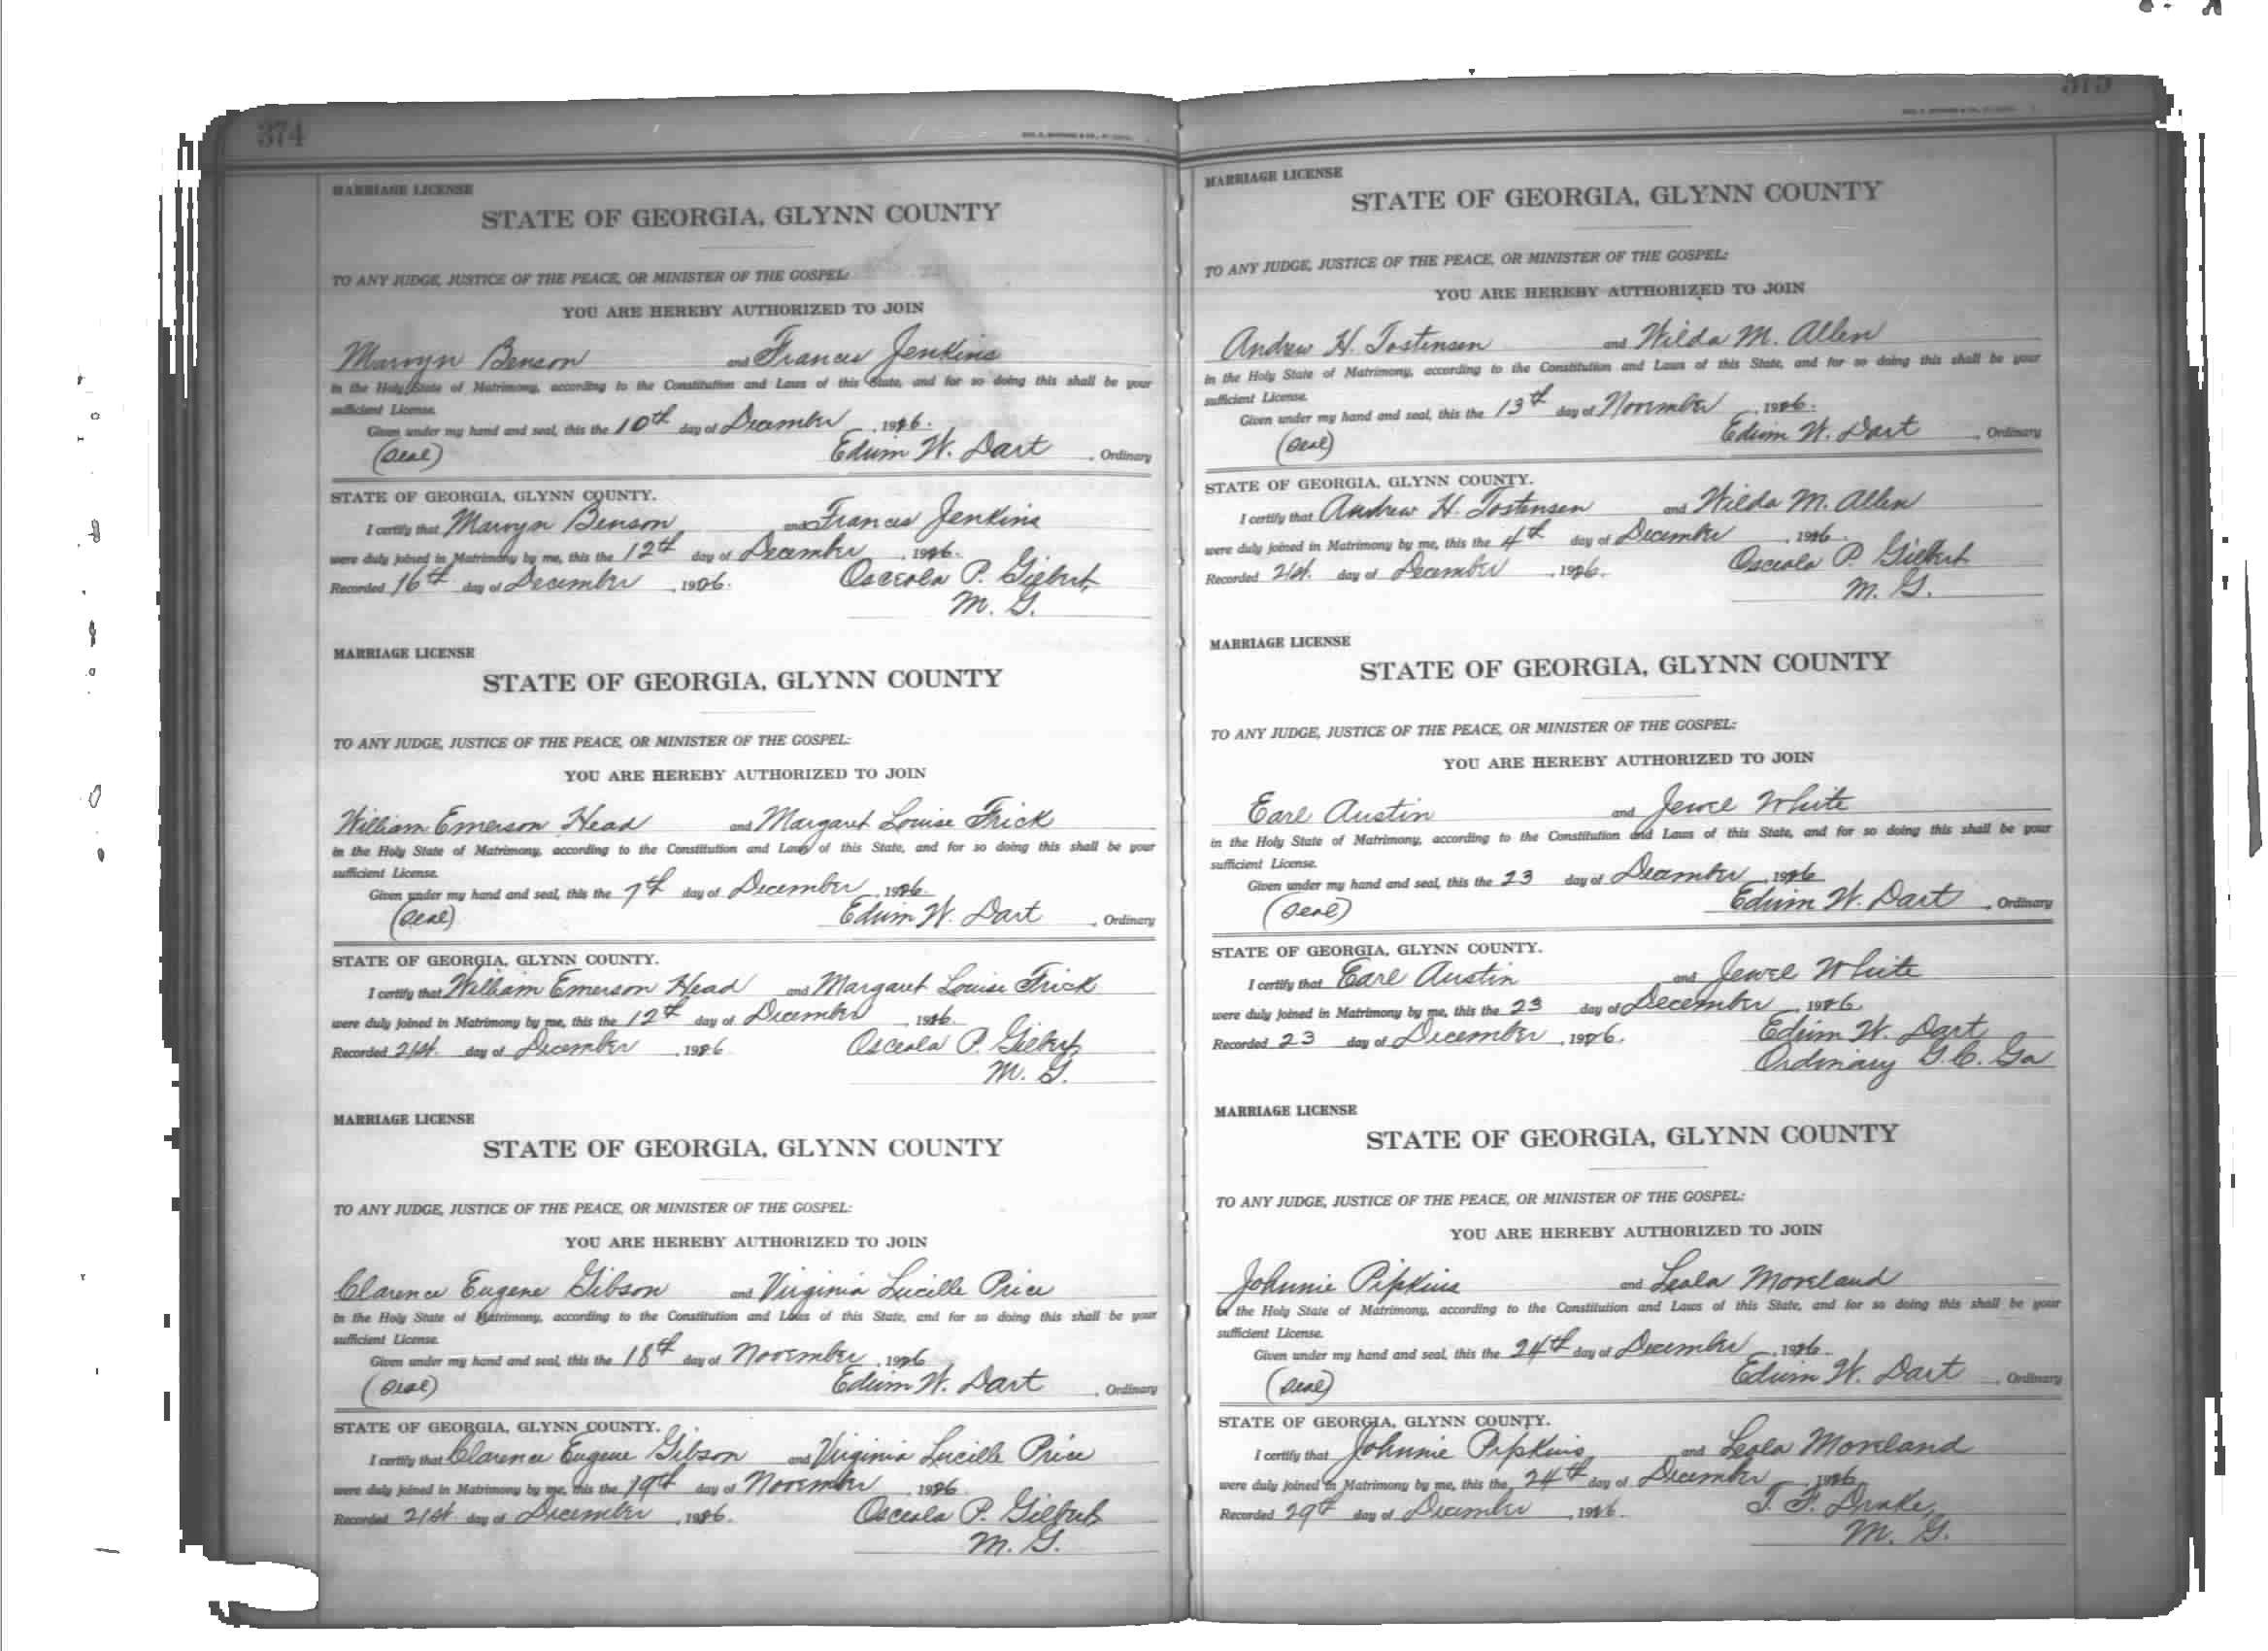 374
MARRIAGE LICENSE
STATE OF GEORGIA, GLYNN COUNTY
TO ANY JUDGE, JUSTICE OF THE PEACE, OR MINISTER OF THE GOSPEL:
YOU ARE HEREBY AUTHORIZED TO JOIN
Marvyn Benson and Frances Jenkins
in the Holy State of Matrimony, according to the Constitution and Laws of this State, and for so doing this shall be your
sufficient License.
Given under my hand and seal, this the 10th day of December
(Seal) Edwin W. Dart, Ordinary
STATE OF GEORGIA, GLYNN COUNTY.
I certify that Marvyn Benson and Frances Jenkins
were duly joined in Matrimony by me, this the 12th day of December
Recorded 16th day of December Osceola P. Gilbert,
M. G.
MARRIAGE LICENSE
STATE OF GEORGIA, GLYNN COUNTY
TO ANY JUDGE, JUSTICE OF THE PEACE, OR MINISTER OF THE GOSPEL:
YOU ARE HEREBY AUTHORIZED TO JOIN
William Emerson Head and Margaret Louise Frick
in the Holy State of Matrimony, according to the Constitution and Laws of this State, and for so doing this shall be your
sufficient License.
Given under my hand and seal, this the 7th day of December
(Seal) Edwin W. Dart, Ordinary
STATE OF GEORGIA, GLYNN COUNTY.
I certify that William Emerson Head and Margaret Louise Frick
were duly joined in Matrimony by me, this the 12th day of December
Recorded 21st. day of December Osceola P. Gilbert,
M. G.
MARRIAGE LICENSE
STATE OF GEORGIA, GLYNN COUNTY
TO ANY JUDGE, JUSTICE OF THE PEACE, OR MINISTER OF THE GOSPEL:
YOU ARE HEREBY AUTHORIZED TO JOIN
Clarence Eugene Gibson and Virginia Lucille Price
in the Holy State of Matrimony, according to the Constitution and Laws of this State, and for so doing this shall be your
sufficient License.
Given under my hand and seal, this the 18th day of November
(Seal) Edwin W. Dart, Ordinary
STATE OF GEORGIA, GLYNN COUNTY.
I certify that Clarence Eugene Gibson and Virginia Lucille Price
were duly joined in Matrimony by me, this the 19th day of November
Recorded 21st day of December Osceola P. Gilbert
M. G.
375
MARRIAGE LICENSE
STATE OF GEORGIA, GLYNN COUNTY
TO ANY JUDGE, JUSTICE OF THE PEACE, OR MINISTER OF THE GOSPEL:
YOU ARE HEREBY AUTHORIZED TO JOIN
Andrew H. Tostensen and Wilda M. Allen
in the Holy State of Matrimony, according to the Constitution and Laws of this State, and for so doing this shall be your
sufficient License.
Given under my hand and seal, this the 13th day of November
(Seal) Edwin W. Dart, Ordinary
STATE OF GEORGIA, GLYNN COUNTY.
I certify that Andrew H. Tostensen and Wilda M. Allen
were duly joined in Matrimony by me, this the 4th day of December
Recorded 21st. day of December Osceola P. Gilbert
M. G.
MARRIAGE LICENSE
STATE OF GEORGIA, GLYNN COUNTY
TO ANY JUDGE, JUSTICE OF THE PEACE, OR MINISTER OF THE GOSPEL:
YOU ARE HEREBY AUTHORIZED TO JOIN
Earl Austin and Jewel White
in the Holy State of Matrimony, according to the Constitution and Laws of this State, and for so doing this shall be your
sufficient License.
Given under my hand and seal, this the 23 day of December
(Seal) Edwin W. Dart, Ordinary
STATE OF GEORGIA, GLYNN COUNTY.
I certify that Earl Austin and Jewel White
were duly joined in Matrimony by me, this the 23 day of December
Recorded 23 day of December Edwin W. Dart
Ordinary G. C. Ga
MARRIAGE LICENSE
STATE OF GEORGIA, GLYNN COUNTY
TO ANY JUDGE, JUSTICE OF THE PEACE, OR MINISTER OF THE GOSPEL:
YOU ARE HEREBY AUTHORIZED TO JOIN
Johnnie Pipkins and Leola Moreland
in the Holy State of Matrimony, according to the Constitution and Laws of this State, and for so doing this shall be your
sufficient License.
Given under my hand and seal, this the 24th day of December
(Seal) Edwin W. Dart, Ordinary
STATE OF GEORGIA, GLYNN COUNTY.
I certify that Johnnie Pipkins and Leola Moreland
were duly joined in Matrimony by me, this the 24th day of December
Recorded 29th day of December T. F. Drake,
M. G.